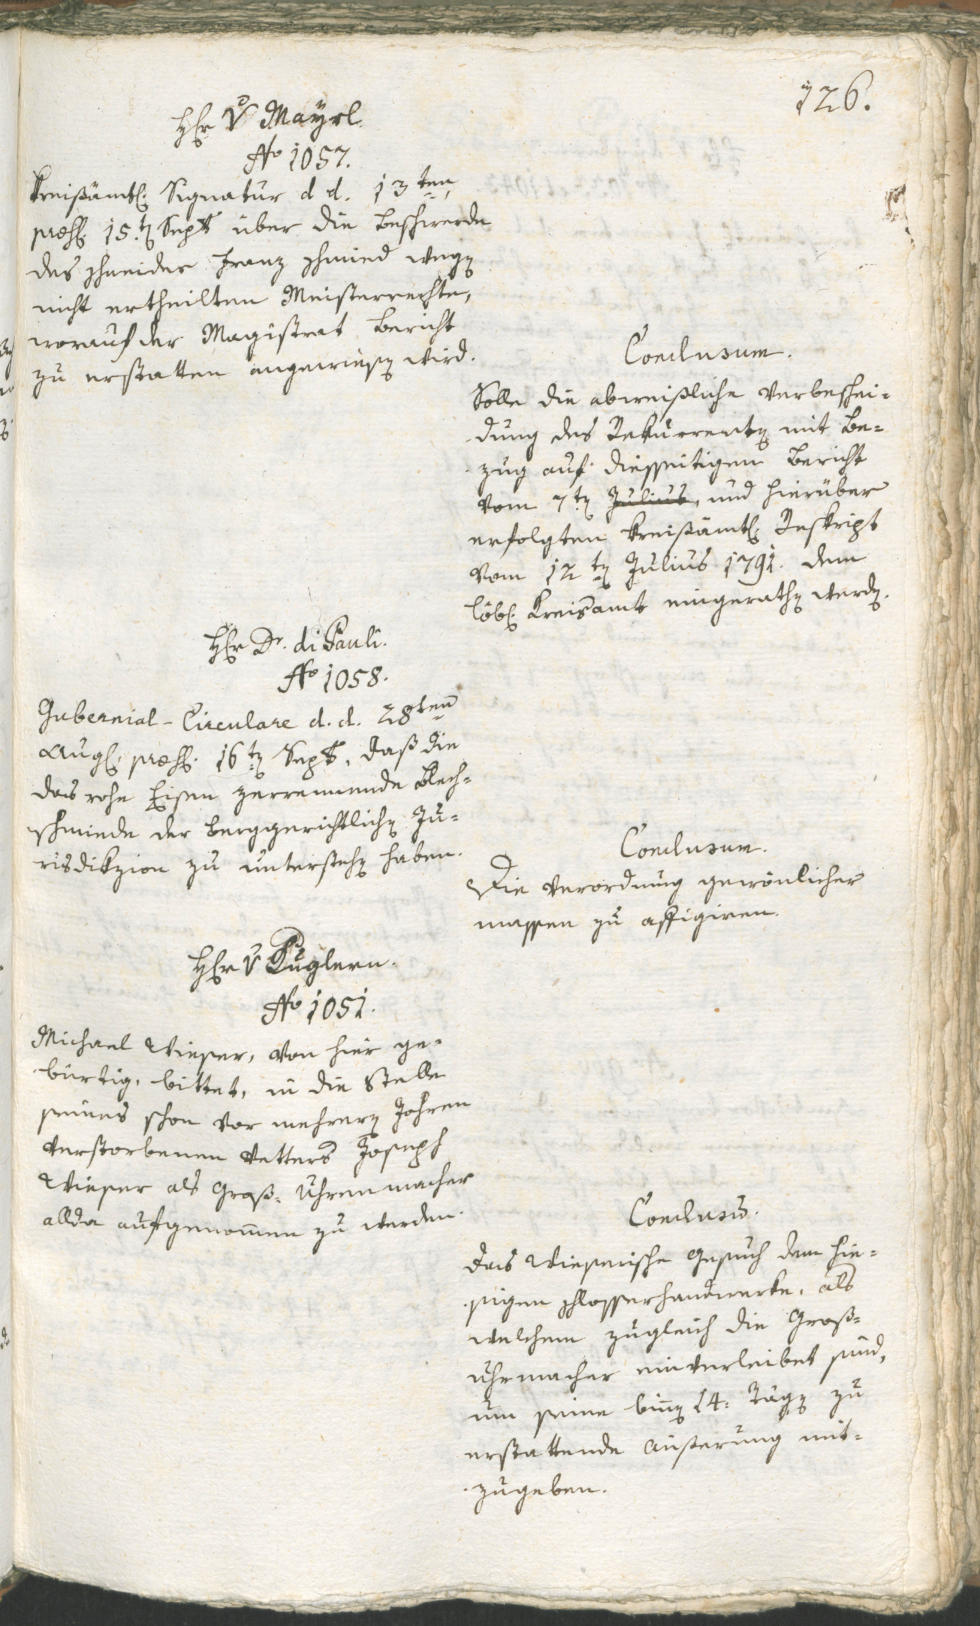 126.
Hr v Mayrl.
No 1057.
Kreißämtl. Signatur d. d. 13ten
præs. 15t Sept über die Beschwerde
des Schneider Franz Schmied wegen
nicht ertheilten Meisterrechte,
worauf der Magistrat Bericht
zu erstatten angewiesen wird.
Conclusum.
Solle die abweißliche Verbeschei-
dung des Rekurrenten mit Be-
zug auf diesseitigen Bericht
vom 7ten Julius, und hierüber
erfolgten kreißämtl. Reskript
vom 12ten Julius 1791. dem
löbl. Kreisamt eingerathen werden.
Hr Dr. di Pauli.
No 1058.
Gubernial-Circulare d. d. 28ten
Augl. præs. 16ten Sept, daß die
das rohe Eisen zerrennende Blech-
schmiede der berggerichtlichen Ju-
risdikzion zu unterstehen haben.
Conclusum.
Die Verordnung gewönlicher
massen zu affigiren.
Hr v Kuglern.
No 1051.
Michael Wieser, von hier ge-
bürtig, bittet, in die Stelle
seines schon vor mehreren Jahren
verstorbenen Vetters Joseph
Wieser als Groß-Uhrenmacher
allda aufgenom̄en zu werden.
Conclusū.
Das Wieserische Gesuch dem hie-
sigen Schlosserhandwerke, als
welchem zugleich die Groß-
uhrmacher einverleibet sind,
um seine binen 14. Tägen zu
erstattende Äußerung mit-
zugeben.